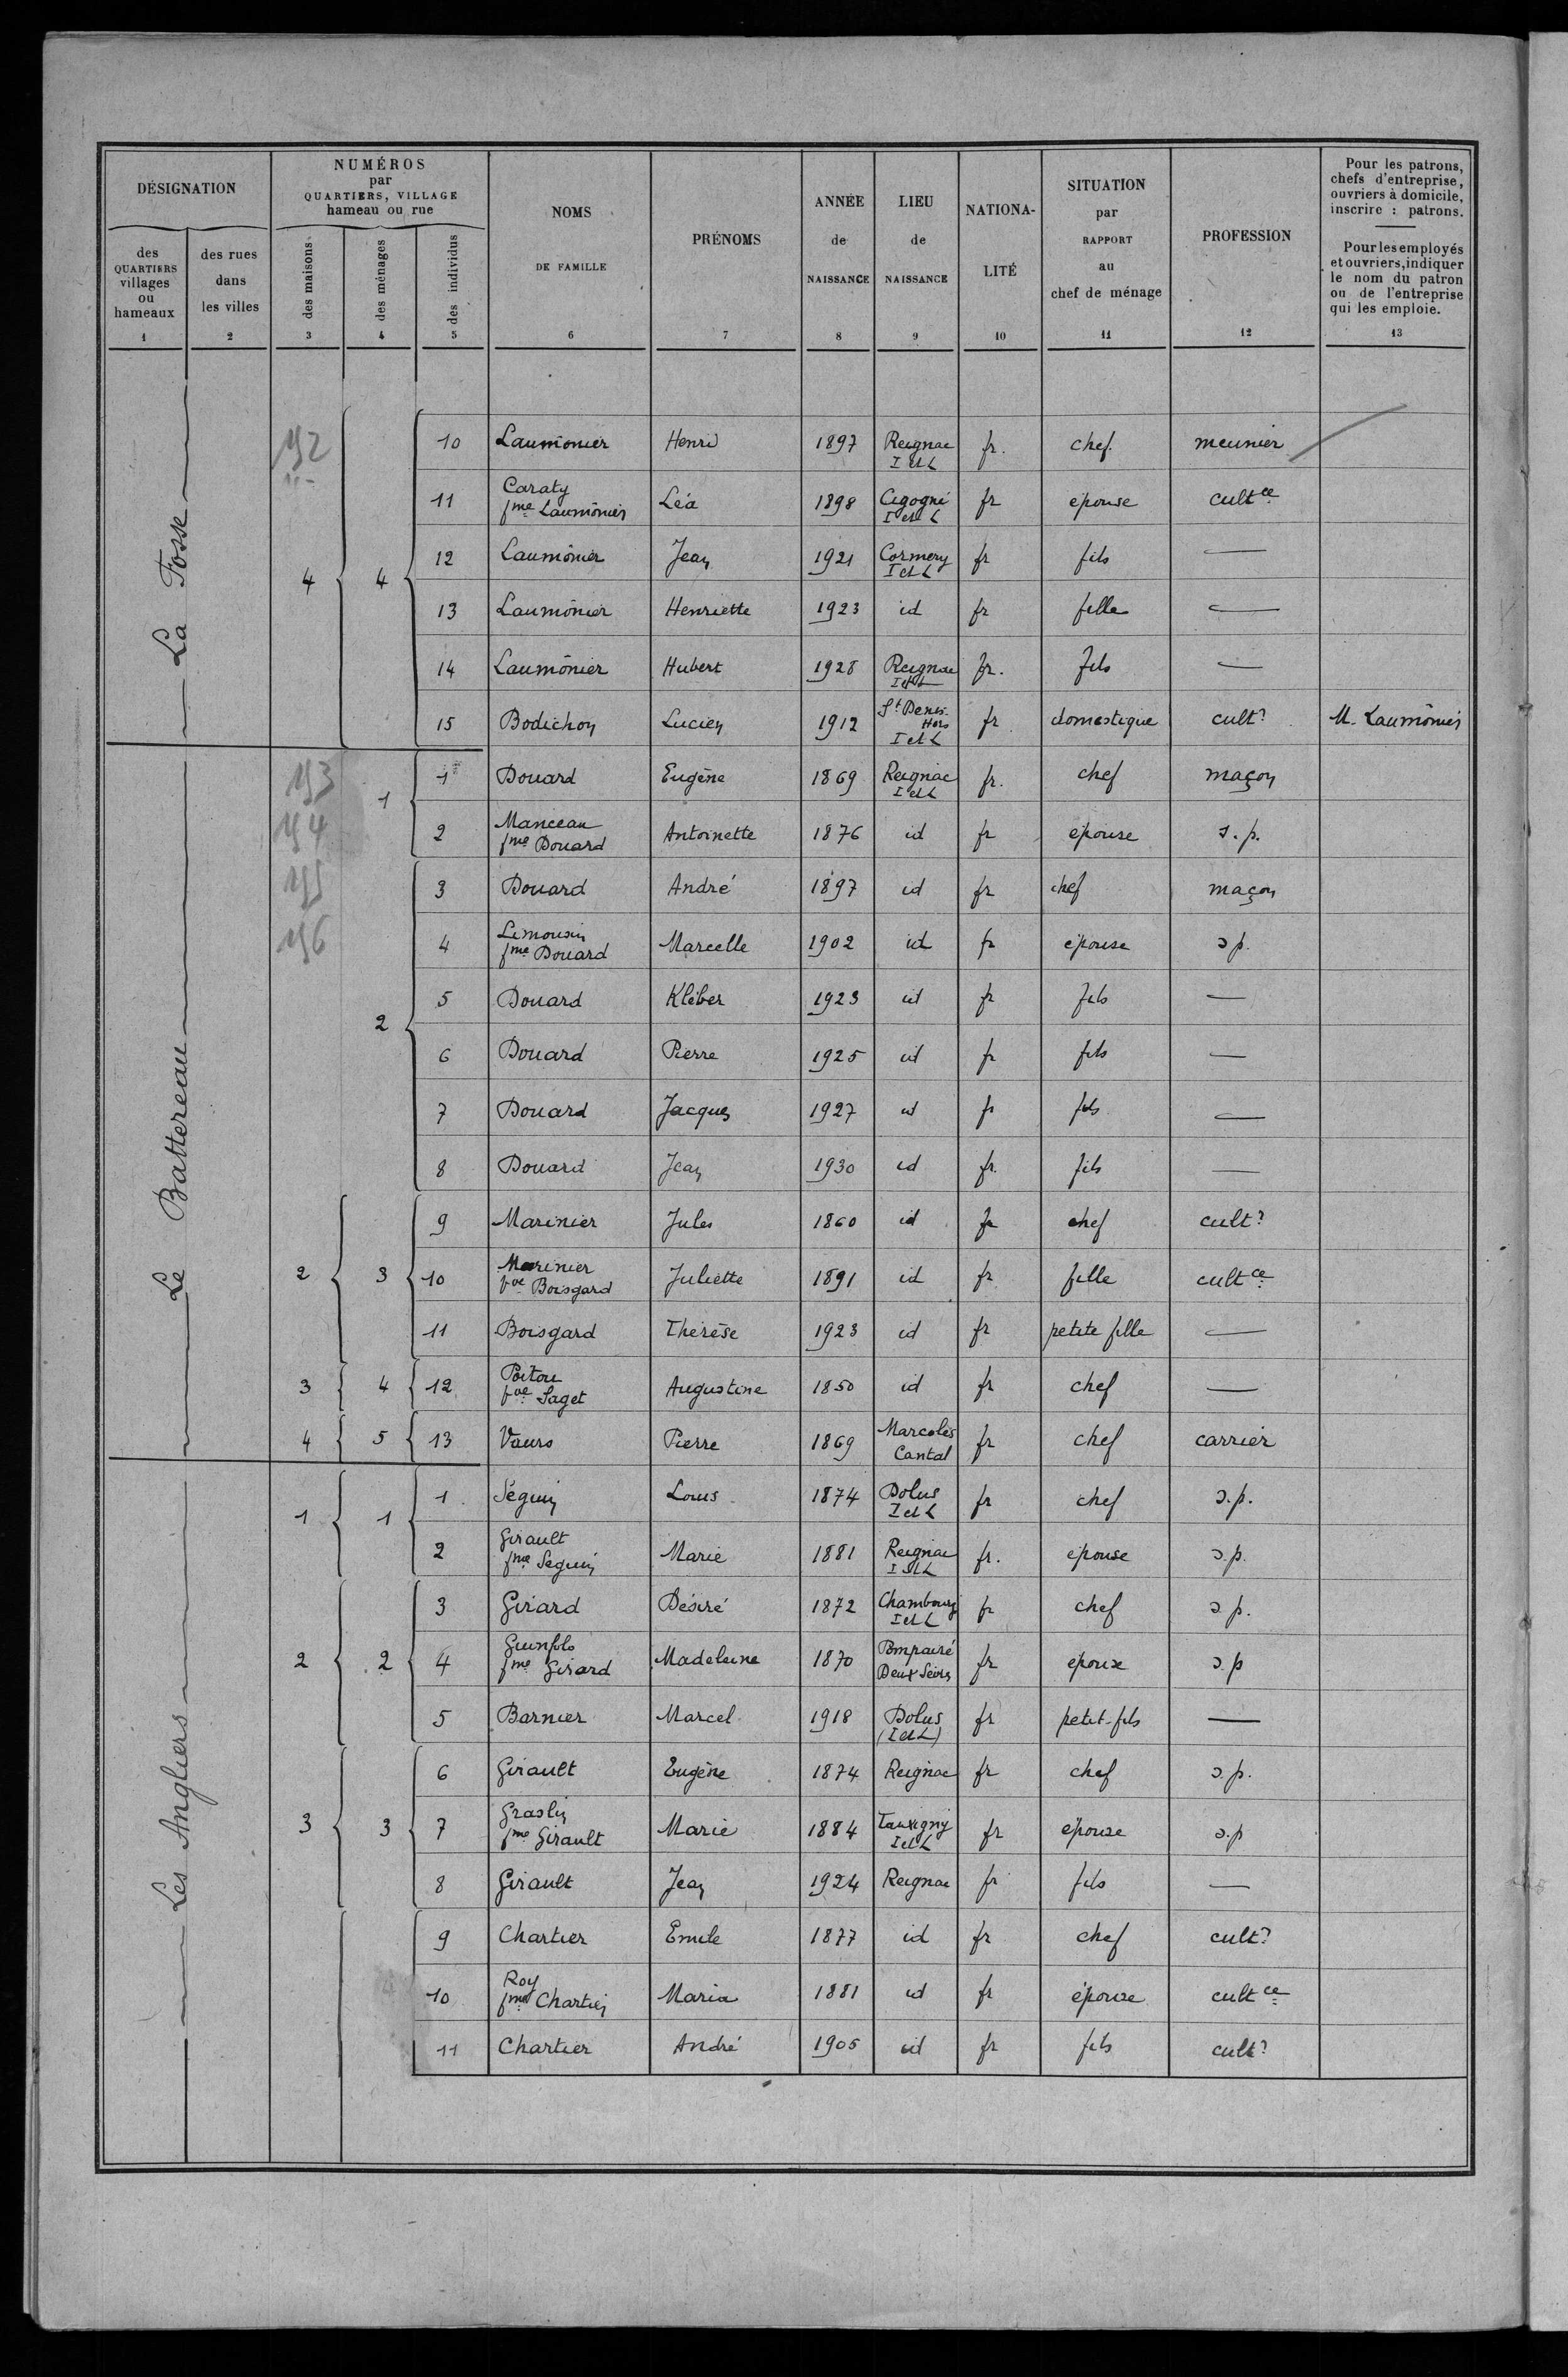 DÉSIGNATION
des QUARTIERS villages ou hameaux
1
des rues dans les villes
2
NUMÉROS
par
QUARTIERS, VILLAGE
hameau ou rue
des maisons
3
des ménages
4
des individus
5
NOMS
DE FAMILLE
6
PRÉNOMS
7
ANNÉE
de
NAISSANCE
8
LIEU
de
NAISSANCE
9
NATIONA-
LITÉ
10
SITUATION
par
RAPPORT
au
chef de ménage
11
PROFESSION
12
Pour les patrons,
chefs d'entreprise,
ouvriers à domicile,
inscrire : patrons.
Pour les employés
et ouvriers, indiquer
le nom du patron
ou de l'entreprise
qui les emploie.
13
La Fosse
192
4 4
10 Laumônier Henri 1897 Reignac I et L fr. chef meunier
11 Caraty fme Laumônier Léa 1898 Cigogné I et L fr épouse cultce
12 Laumônier Jean 1921 Cormery I et L fr fils —
13 Laumônier Henriette 1923 id fr fille —
14 Laumônier Hubert 1928 Reignac I et L fr. fils —
15 Bodichon Lucien 1912 St Denis Hors I et L fr domestique cultr M. Laumônier
Le Battereau
193
194
195
196
1
1 Douard Eugène 1869 Reignac I et L fr. chef maçon
2 Manceau fme Douard Antoinette 1876 id fr épouse s.p.
2
3 Douard André 1897 id fr chef maçon
4 Limousin fme Douard Marcelle 1902 id fr épouse s p.
5 Douard Kléber 1923 id fr fils —
6 Douard Pierre 1925 id fr fils —
7 Douard Jacques 1927 id fr fils —
8 Douard Jean 1930 id fr. fils —
2 3
9 Marinier Jules 1860 id fr chef cultr
10 Marinier vve Boisgard Juliette 1891 id fr fille cultce
11 Boisgard Thérèse 1923 id fr petite fille —
3 4 12 Poitou vve Saget Augustine 1850 id fr chef —
4 5 13 Vaurs Pierre 1869 Marcolès Cantal fr chef carrier
Les Angliers
1 1
1 Séguin Louis 1874 Dolus I et L fr chef s.p.
2 Girault fme Seguin Marie 1881 Reignac I et L fr. épouse s.p.
2 2
3 Girard Désiré 1872 Chambourg I et L fr chef s p.
4 fme Girard Madeleine 1870 Pompairé Deux Sèvres fr épouse s.p
5 Barnier Marcel 1918 Dolus (I et L) fr petit-fils —
3 3
6 Girault Eugène 1874 Reignac fr chef s.p.
7 Graslin fme Girault Marie 1884 Tauxigny I et L fr épouse s.p
8 Girault Jean 1924 Reignac fr fils —
9 Chartier Emile 1877 id fr chef cultr
10 Roy fme Chartier Maria 1881 id fr épouse cultce
11 Chartier André 1905 id fr fils cultr